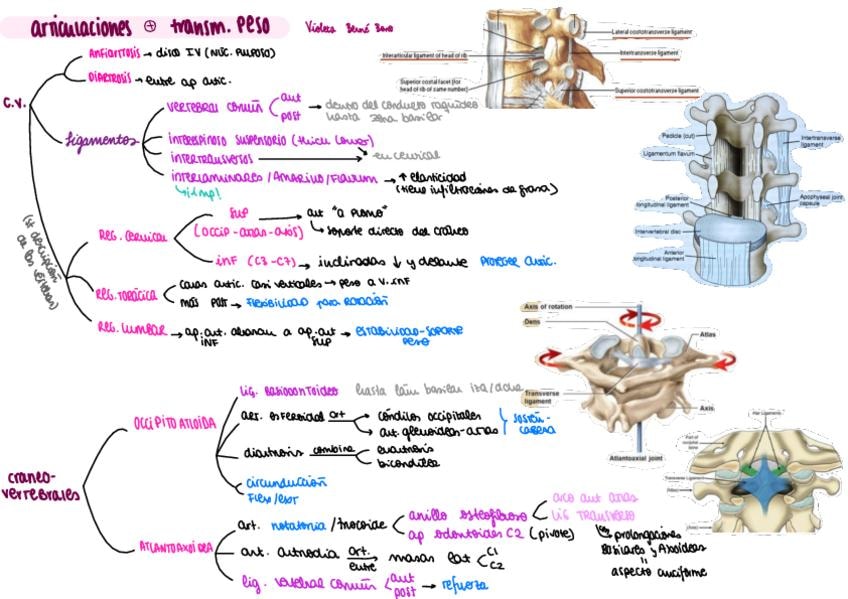 articulaciones ⊕ transm. PESO
Violeta
C.V.
ANFIARTROSIS → disco IV (NÚC. PULPOSO)
DIARTROSIS → entre ap artic.
Ligamentos
VERTEBRAL COMÚN
ant
post
→ dentro del conducto raquídeo
hasta zona basilar
INTERESPINOSO SUSPENSORIO
INTERTRANSVERSOS
→ en cervical
INTERLAMINARES / AMARILLO / FLAVUM → ↑ elasticidad
(tiene infiltraciones de grasa)
(st descripción
de las vértebras)
REG. CERVICAL
SUP
(OCCIP - atlas - axis)
→ art "a PLOMO"
soporte directo del cráneo
INF (C3 - C7) → inclinadas ↓ y delante
PROTEGER artic.
REG. TORÁCICA
caras artic. casi verticales → peso a V. INF
más post → FLEXIBILIDAD para ROTACIÓN
REG. LUMBAR → ap. art. INF abrazan a ap. art SUP → ESTABILIDAD - SOPORTE
PESO
Lateral costotransverse ligament
Interarticular ligament of head of rib
Intertransverse ligament
Superior costal facet (for
head of rib of same number)
Superior costotransverse ligament
Pedicle (cut)
Ligamentum flavum
Intertransverse
ligament
Posterior
longitudinal ligament
Apophyseal joint
capsule
Intervertebral disc
Anterior
longitudinal ligament
Axis of rotation
Dens
Atlas
Transverse
ligament
Axis
Atlantoaxial joint
Transverse Ligament
(Atlas)
(Axis)
craneo-
vertebrales
OCCIPITOATLOIDEA
Lig. BASIODONTOIDEO
hasta lám basilar
art. esferoidal
art
cóndilos occipitales
art. glenoideas - atlas
SOSTÉN -
CABEZA
diartrosis combine
enartrosis
bicondílea
circunducción
Flex/ext
ATLANTOAXOIDEA
art. rotatoria / trocoide
anillo osteofibroso
arco ant atlas
Lig TRANSVERSO
ap odontoides C2 (pivote)
prolongaciones
basilares y Axoideas
=
aspecto cruciforme
art. artrodia
art.
entre
→ masas lat
C1
C2
lig. vertebral común
ant
post
→ refuerza